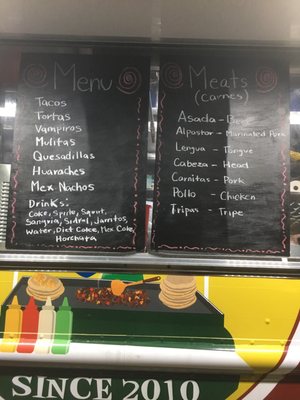 Menu
Tacos
Tortas
Vampiros
Mulitas
Quesadillas
Huaraches
Mex Nachos
Drinks
Coke, Sprite, Squirt,
Sangria, Sidral, Jarritos
Water, Diet Coke, Mex Coke,
Horchata
Meats
(carnes)
Asada - Beef
Alpastor - Marinated Pork
Lengua - Tongue
Cabeza - Head
Carnitas - Pork
Pollo - Chicken
Tripas - Tripe
SINCE 2010